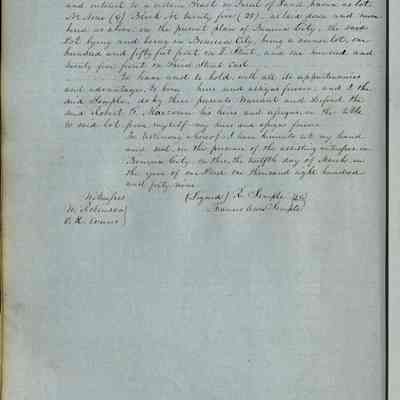 and interest to a certain Tract or Parcel of Land known as lots
No Nine (9) Block No twenty five (25) as laid down and num
bered as above on the present plan of Benicia City, the said
lot lying and being in Benicia City being a corner lot, one
hundred and fifty feet front on D Street, and one hundred and
twenty five front on Third Street East
To have and to hold, with all its appurtenances
and advantages, to him heirs and assigns forever. and I the
said Semple, do by these presents Warrant and defend the
said Robert his heirs and assigns, in the title
to said lot from myself my heirs and assigns forever
In Testimony whereof I have hereunto set my hand
and seal in the presence of the assisting witnesses in
Benicia City on this the twelfth day of March in
the year of our Lord one thousand eight hundred
and forty nine
Witnesses (Signed) R. Semple
W. Robinson Frances Ann Semple